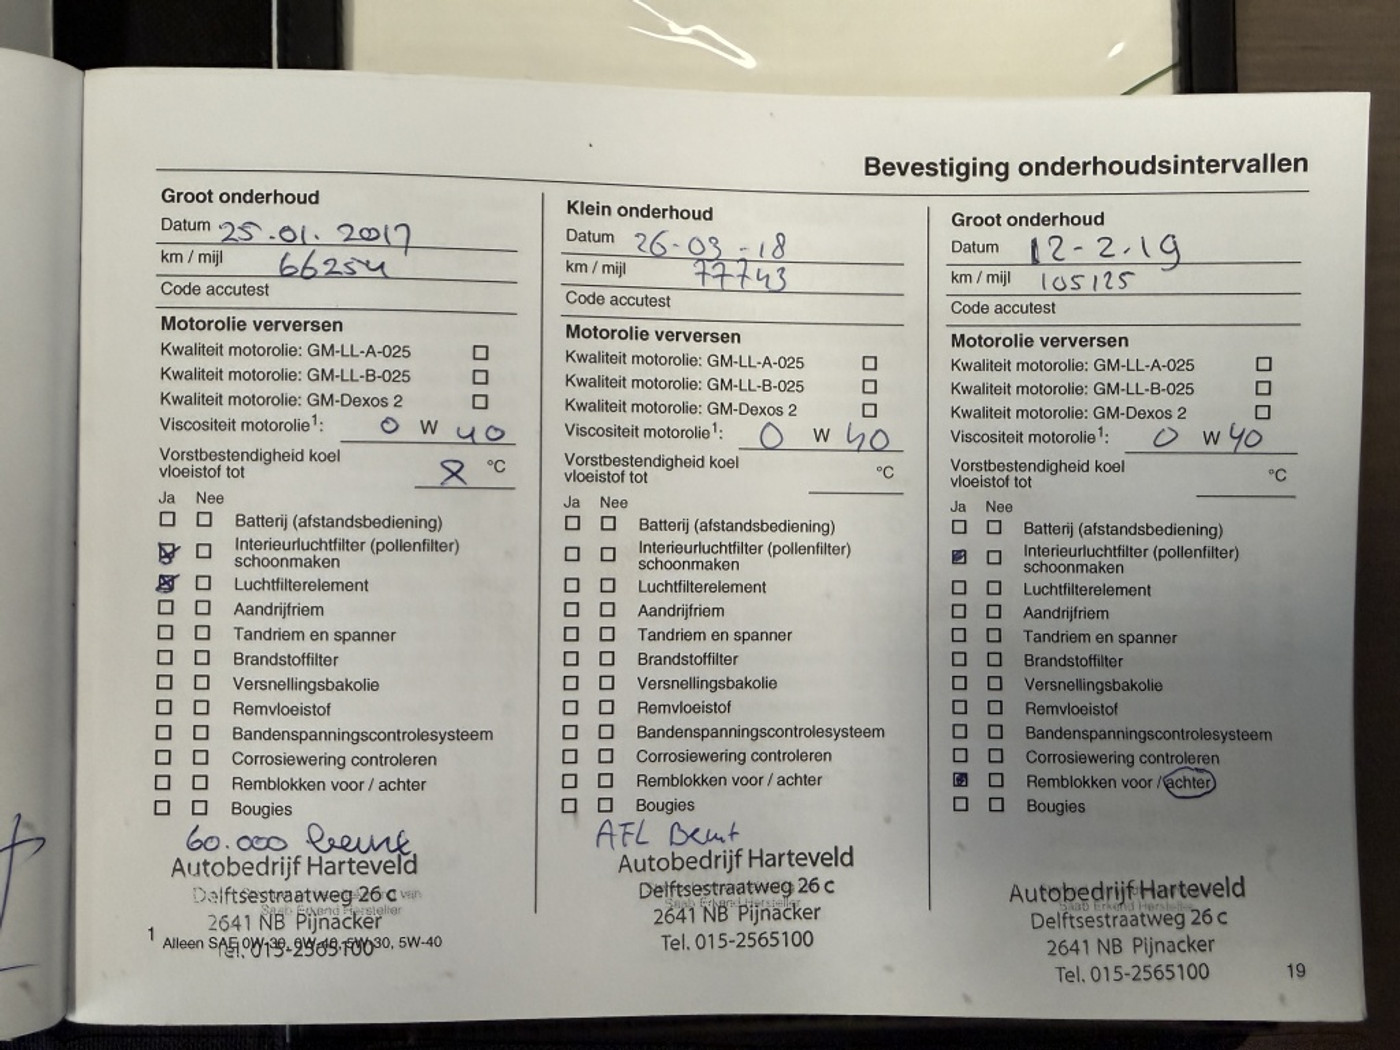 Bevestiging onderhoudsintervallen
Groot onderhoud
Datum 25.01.2017
km / mijl 66254
Code accutest
Motorolie verversen
Kwaliteit motorolie: GM-LL-A-025
Kwaliteit motorolie: GM-LL-B-025
Kwaliteit motorolie: GM-Dexos 2
Viscositeit motorolie1: 0 W 40
Vorstbestendigheid koel
vloeistof tot °C
Ja Nee
Batterij (afstandsbediening)
Interieurluchtfilter (pollenfilter)
schoonmaken
Luchtfilterelement
Aandrijfriem
Tandriem en spanner
Brandstoffilter
Versnellingsbakolie
Remvloeistof
Bandenspanningscontrolesysteem
Corrosiewering controleren
Remblokken voor / achter
Bougies
60.000 beurt
Autobedrijf Harteveld
Delftsestraatweg 26 c
2641 NB Pijnacker
Tel. 015-2565100
1 Alleen SAE 0W-30, 0W-40, 5W-30, 5W-40
Klein onderhoud
Datum 26-03-18
km / mijl 77743
Code accutest
Motorolie verversen
Kwaliteit motorolie: GM-LL-A-025
Kwaliteit motorolie: GM-LL-B-025
Kwaliteit motorolie: GM-Dexos 2
Viscositeit motorolie1: 0 W 40
Vorstbestendigheid koel
vloeistof tot °C
Ja Nee
Batterij (afstandsbediening)
Interieurluchtfilter (pollenfilter)
schoonmaken
Luchtfilterelement
Aandrijfriem
Tandriem en spanner
Brandstoffilter
Versnellingsbakolie
Remvloeistof
Bandenspanningscontrolesysteem
Corrosiewering controleren
Remblokken voor / achter
Bougies
AFL Beurt
Autobedrijf Harteveld
Delftsestraatweg 26 c
Saab Erkend Hersteller
2641 NB Pijnacker
Tel. 015-2565100
Groot onderhoud
Datum 12-2-19
km / mijl 105125
Code accutest
Motorolie verversen
Kwaliteit motorolie: GM-LL-A-025
Kwaliteit motorolie: GM-LL-B-025
Kwaliteit motorolie: GM-Dexos 2
Viscositeit motorolie1: 0 W 40
Vorstbestendigheid koel
vloeistof tot °C
Ja Nee
Batterij (afstandsbediening)
Interieurluchtfilter (pollenfilter)
schoonmaken
Luchtfilterelement
Aandrijfriem
Tandriem en spanner
Brandstoffilter
Versnellingsbakolie
Remvloeistof
Bandenspanningscontrolesysteem
Corrosiewering controleren
Remblokken voor / achter
Bougies
Autobedrijf Harteveld
Saab Erkend Hersteller
Delftsestraatweg 26 c
2641 NB Pijnacker
Tel. 015-2565100
19